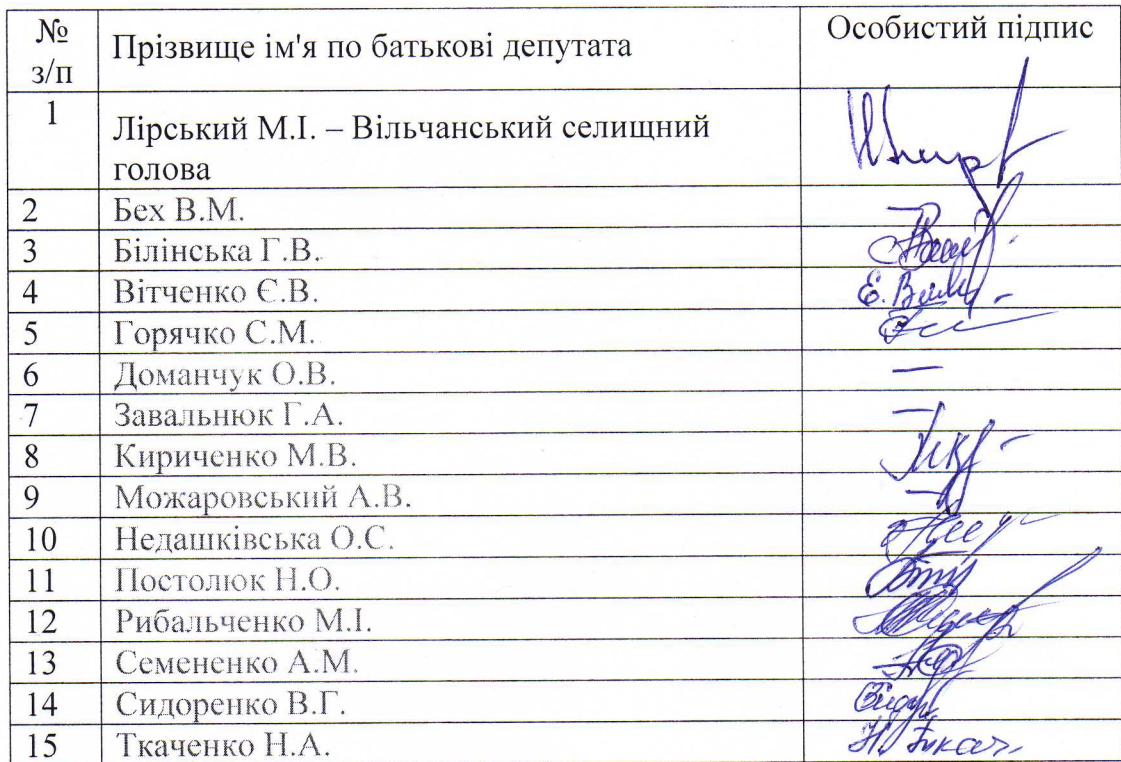 № з/п Прізвище ім'я по батькові депутата Особистий підпис
1 Лірський М.І. – Вільчанський селищний
голова
2 Бех В.М. —
3 Білінська Г.В.
4 Вітченко Є.В. Є. Вітч
5 Горячко С.М.
6 Доманчук О.В. —
7 Завальнюк Г.А. —
8 Кириченко М.В.
9 Можаровський А.В. —
10 Недашківська О.С.
11 Постолюк Н.О.
12 Рибальченко М.І.
13 Семененко А.М.
14 Сидоренко В.Г.
15 Ткаченко Н.А. Н. Ткач